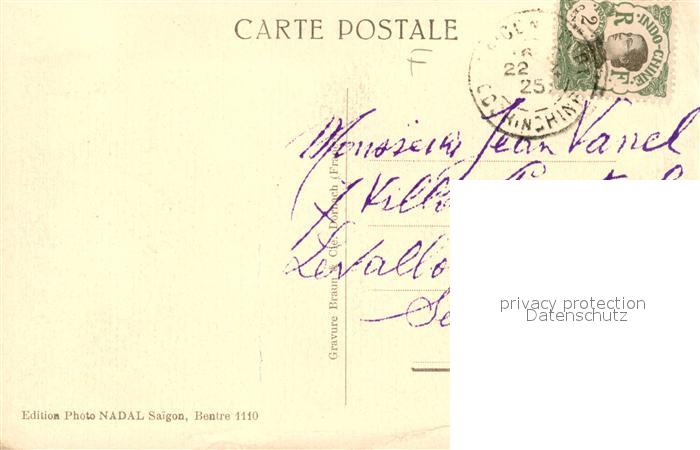 CARTE POSTALE
F
2
INDO-CHINE
R F
22
25
COCHINCHINE
Monsieur Jean Vanel
7 Villa
Levallo
Se
Gravure Braun & Cie, Dornach (Fra
privacy protection
Datenschutz
Edition Photo NADAL Saïgon, Bentre 1110